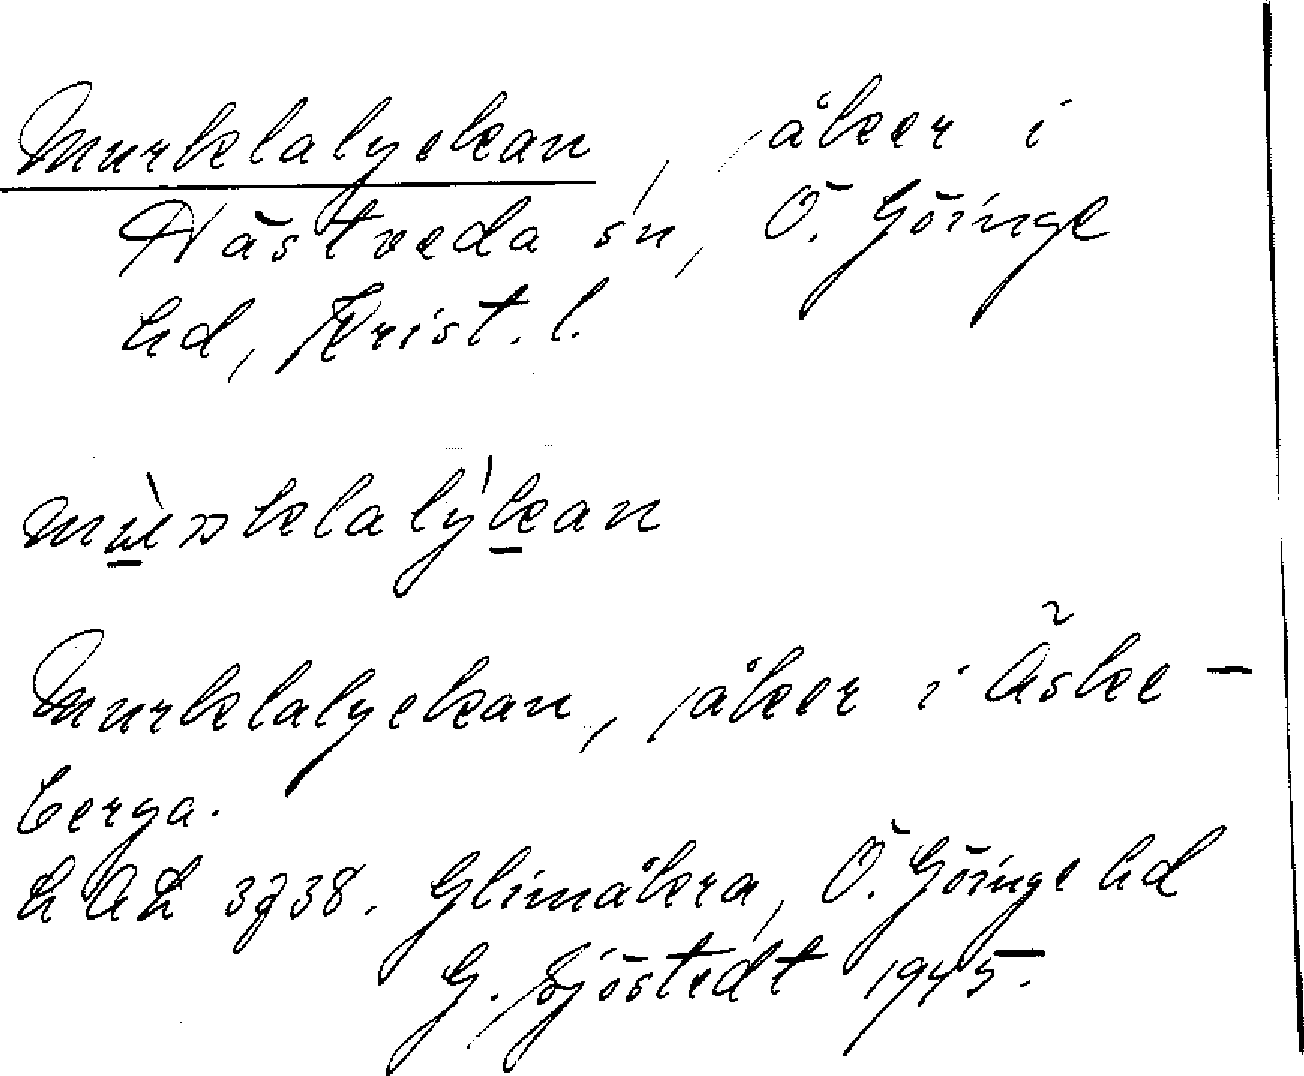 Murklalyckan, åker i
Hästveda sn, Ö. Göinge
hd, Krist. l.
Murklalyckan, åker i Äske-
berga.
LAL 3738. Glimåkra, Ö. Göinge hd
G. Sjöstedt 1945.